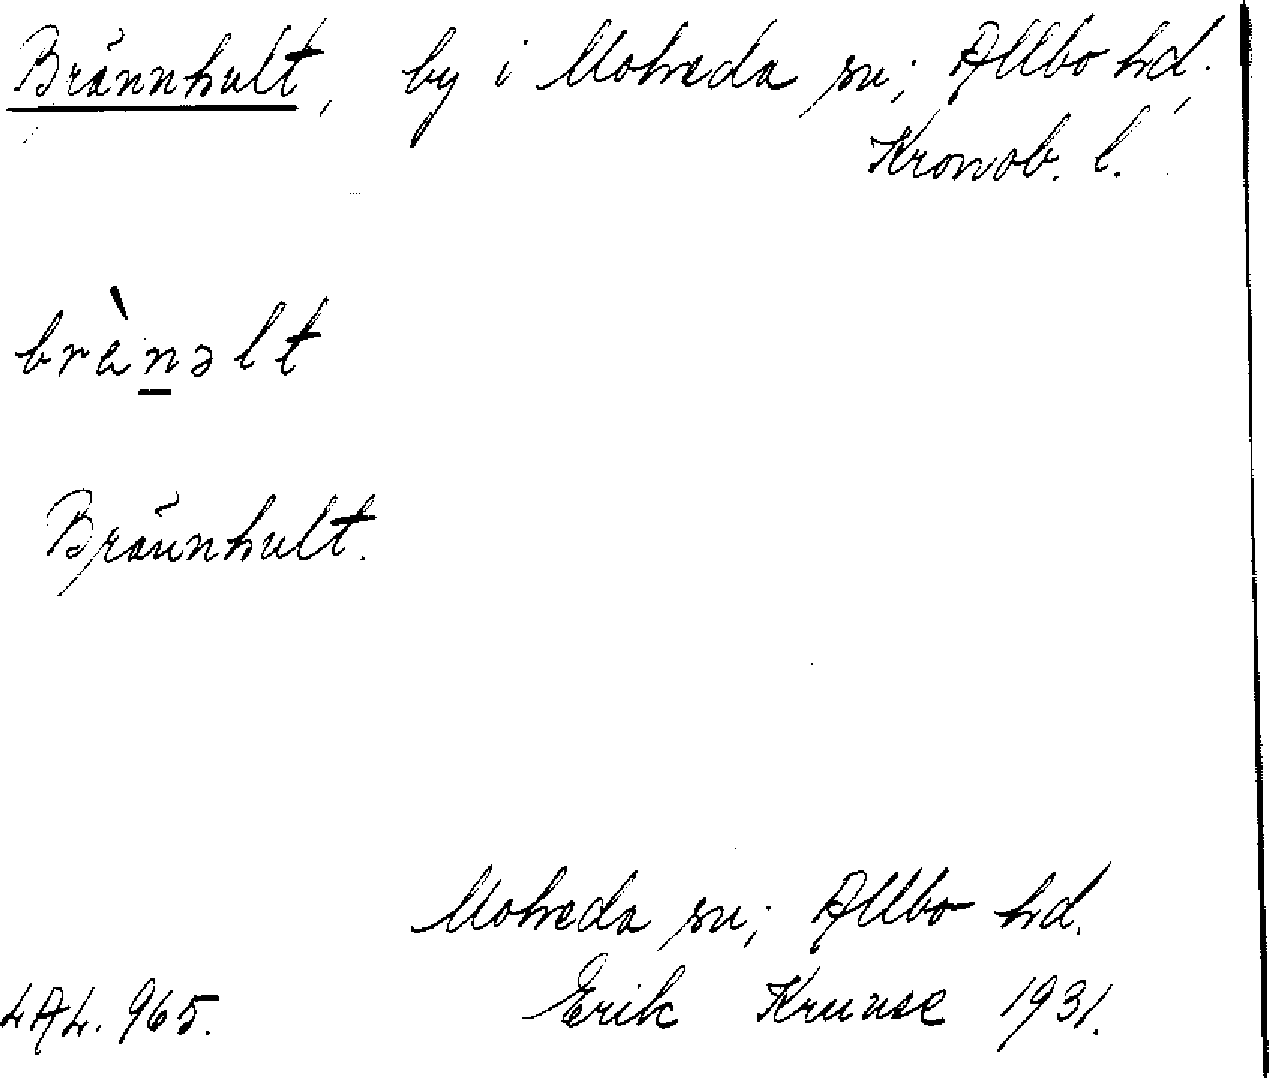 Brännhult, by i Moheda sn; Allbo hd.
Kronob. l.
brànəlt
Brännhult.
Moheda sn; Allbo hd.
Erik Kruuse 1931.
LAL. 965.